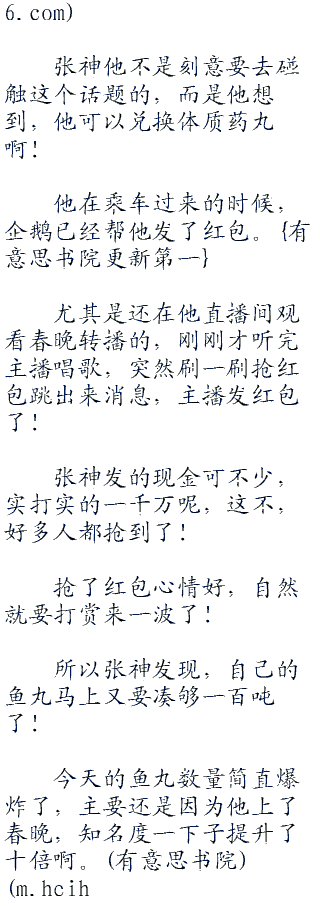 6.com)
张神他不是刻意要去碰
触这个话题的，而是他想
到，他可以兑换体质药丸
啊！
他在乘车过来的时候，
企鹅已经帮他发了红包。{有
意思书院更新第一}
尤其是还在他直播间观
看春晚转播的，刚刚才听完
主播唱歌，突然刷一刷抢红
包跳出来消息，主播发红包
了！
张神发的现金可不少，
实打实的一千万呢，这不，
好多人都抢到了！
抢了红包心情好，自然
就要打赏来一波了！
所以张神发现，自己的
鱼丸马上又要凑够一百吨
了！
今天的鱼丸数量简直爆
炸了，主要还是因为他上了
春晚，知名度一下子提升了
十倍啊。(有意思书院)
(m.hcih